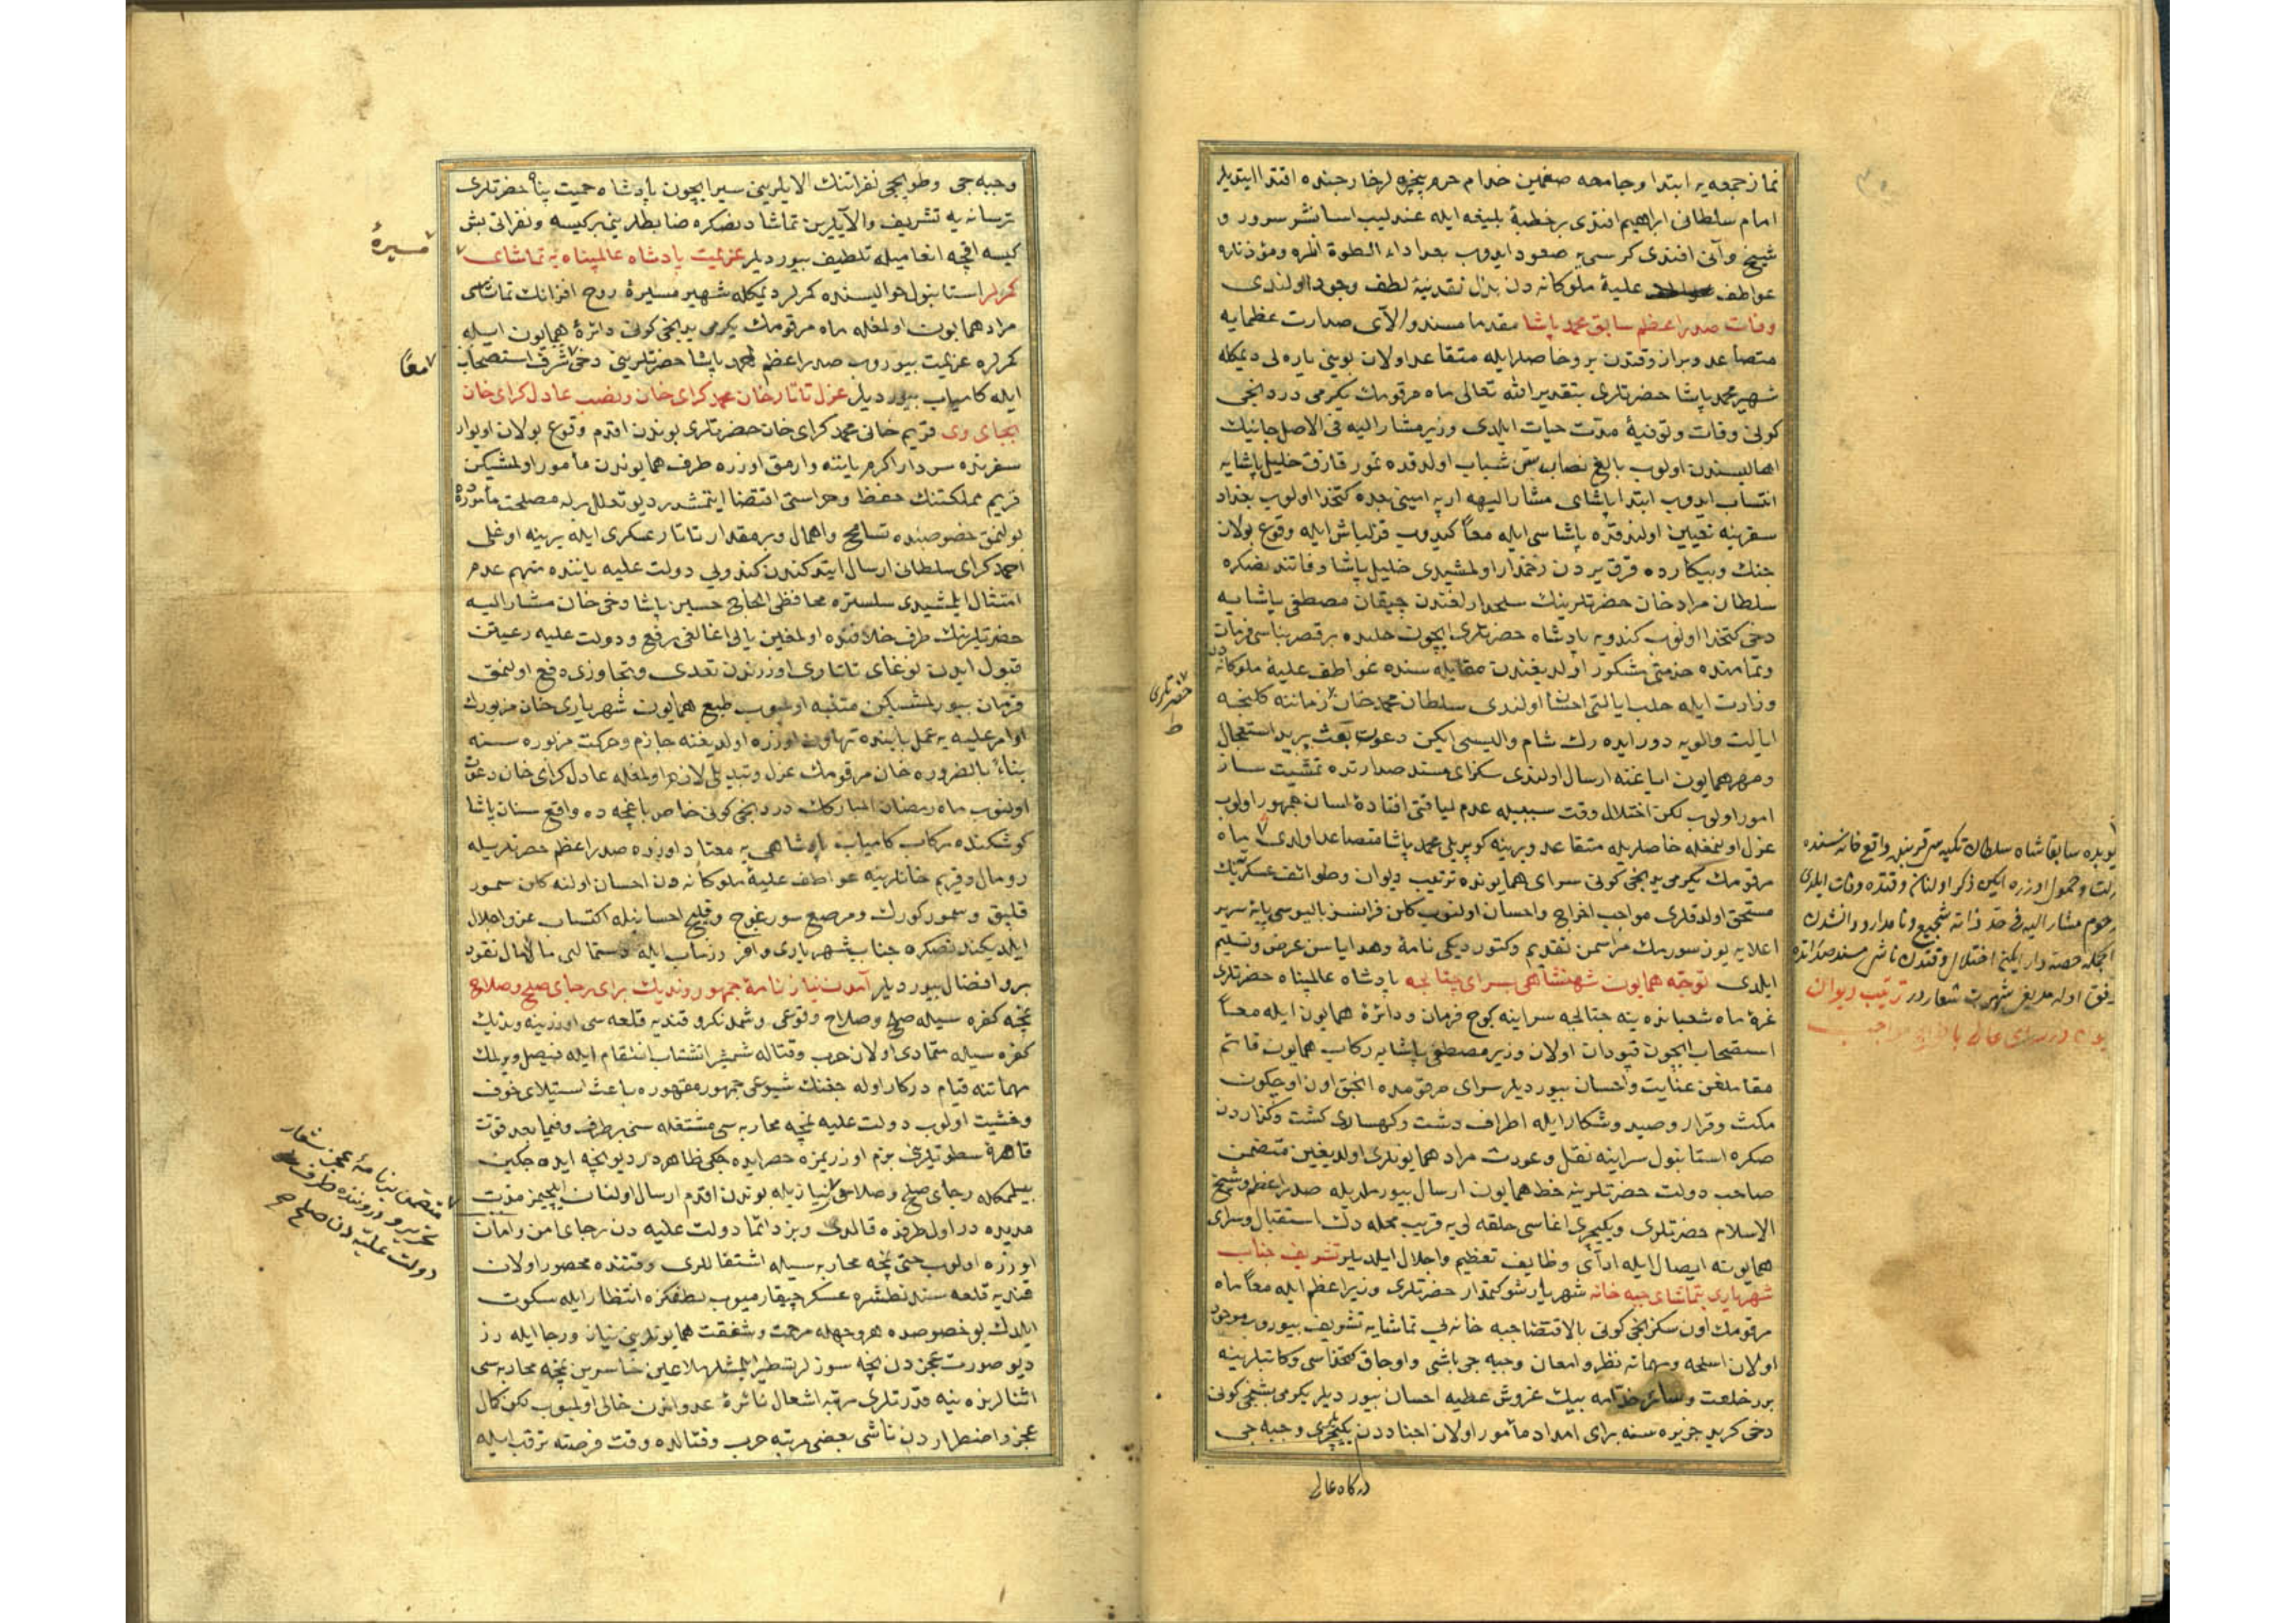 نماز جمعه‌یه ابتدا و جامعه صغمین خدام حرم پنجره لر خارجنده اقتدا ایتدیلر
امام سلطانی ابراهیم افندی بر خطبهٔ بلیغه ایله عندلیب اسا نشر سرور و
شیخ وآنی افندی کرسی‌یه صعود ایدوب بعد اداء الصلوة انلره و مؤذنلره
عواطف علیهٔ ملوکانه دن بذل نقدینهٔ لطف وجود اولندی
وفات صدر اعظم سابق محمد پاشا مقدما مسند والای صدارت عظمایه
متصاعد و براز وقتدن برو خاصلر ایله متقاعد اولان بوینی یاره لی دیمکله
شهیر محمد پاشا حضرتلری بتقدیر الله تعالی ماه مرقومك یکرمی دردنجی
کونی وفات و توفیهٔ مدت حیات ایلدی وزیر مشار الیه فی الاصل جانیك
اهالیسندن اولوب بالغ نصاب سن شباب اولدقده تمور قازق خلیل پاشایه
انتساب ایدوب ابتدا پاشای مشار الیهه ارپه امینی بعده کتخدا اولوب بغداد
سفرینه تعیین اولندقده پاشاسی ایله معاً کیدوب قزلباش ایله وقوع بولان
جنك و پیکارده قرق یردن زخمدار اولمشیدی خلیل پاشا وفاتندنصکره
سلطان مراد خان حضرتلرینك سلحدارلغندن چیقان مصطفی پاشایه
دخی کتخدا اولوب کندویه پادشاه حضرتلری ایچون حلبده بر قصر بناسی فرمان
و تمامنده خدمتی مشکور اولدیغندن مقابله سنده عواطف علیهٔ ملوکانه دن
وزارت ایله حلب ایالتی احسان اولندی سلطان محمد خان زماننه کلنجه
ایالت والویه دور ایده رك شام والیسی ایکن دعوت بعث برید استعجال
و مهر همایون ایاغنه ارسال اولندی سکز ای مسند صدارتده تمشیت ساز
امور اولوب لکن اختلال وقت سببیله عدم لیاقتی افتادهٔ لسان جمهور اولوب
عزل اولنمغله خاصلر یله متقاعد و یرینه کوپریلی محمد پاشا متصاعد اولدی ماه
مرقومك یکرمی یدنجی کونی سرای همایونده ترتیب دیوان و طوائف عسکرینك
مستحق اولدقلری مواجب اخراج و احسان اولنوب کلن فرانسز بالیوسی پایهٔ سریر
اعلایه یوز سورمك مراسمن تقدیم و کتوردیکی نامهٔ و هدایاسن عرض و تسلیم
ایلدی توجه همایون شهنشاهی بسرای چتالجه پادشاه عالمپناه حضرتلری
غرهٔ ماه شعبانده ینه چتالجه سراینه کوچ فرمان و دائرهٔ همایون ایله معاً
استصحاب ایچون قپودان اولان وزیر مصطفی پاشایه رکاب همایون قائم
مقاملغن عنایت و احسان بیوردیلر سرای مرقومده انجق اون اوچ کون
مکث و قرار و صید و شکار ایله اطراف دشت و کهساری کشت و کذاردن
صکره استانبول سراینه نقل و عودت مراد همایونلری اولدیغین متضمن
صاحب دولت حضرتلرینه خط همایون ارسال بیورملریله صدر اعظم و شیخ
الاسلام حضرتلری و یکیچری اغاسی حلقه لی‌یه قریب محله دك استقبال و سرای
همایونه ایصال ایله ادای وظایف تعظیم و اجلال ایلدیلر تشریف جناب
شهریاری بتماشای جبه خانه شهریار شوکتمدار حضرتلری وزیر اعظم ایله معاً ماه
مرقومك اون سکزنجی کونی بالاقتضا جبه خانه‌یی تماشایه تشریف بیوروب موجود
اولان اسلحه و مهماته نظر و امعان و جبه جی باشی و اوجاق کتخداسی و کاتبلرینه
برر خلعت و سائر خدامه بیك غروش عطیه احسان بیوردیلر یکرمی بشنجی کونی
دخی کرید جزیره سنه برای امداد مأمور اولان اجناددن یکیچری و جبه جی
درکاه عالی
حضرتلری
ط
بوندن سابقا شاه سلطان تکیه سی قربنده واقع خانه سنده
اوزره ایکن ذکر اولنان وقتده وفات ایلدی
مرحوم مشار الیه فی حد ذاته شجیع و نامدار و دانشدن
مسند صدارتده
شهرت شعاردر ترتیب دیوان
و جبه جی و طوپجی نفراتنك الایلرینی سیر ایچون پادشاه حمیت پناه حضرتلری
ترسانه‌یه تشریف و الایلرین تماشادنصکره ضابطلرینه بر کیسه و نفراتی بش
کیسه اقچه انعامیله تلطیف بیوردیلر عزیمت پادشاه عالمپناه به تماشای
کمرلر استانبول حوالیسنده کمرلر دیمکله شهیر مسیرهٔ روح افزانك تماشاسی
مراد همایون اولمغله ماه مرقومك یکرمی یدنجی کونی دائرهٔ همایون ایله
کمرلره عزیمت بیوروب صدر اعظم احمد پاشا حضرتلرینی دخی شرف استصحاب
ایله کامیاب بیوردیلر عزل تاتار خان محمد کرای خان و نصب عادل کرای خان
بجای وی قریم خانی محمد کرای خان حضرتلری بوندن اقدم وقوع بولان اویوار
سفرنده سردار اکرم یاننه وارمق اوزره طرف همایوندن مأمور اولمشیکن
قریم مملکتنك حفظ و حراستی اقتضا ایتمشدر دیو تعلل برله مصلحت مأموره ده
بولنمق خصوصنده تسامح و اهمال و بر مقدار تاتار عسکری ایله یرینه اوغلی
احمد کرای سلطانی ارسال ایتدکندن کندویی دولت علیه یاننده متهم عدم
امتثال ایلمشیدی سلستره محافظی الحاج حسین پاشا دخی خان مشار الیه
حضرتلرینك طرف خلافنده اولمغین یالی اغالغی رفع و دولت علیه رعیتن
قبول ایدن نوغای تاتاری اوزرندن تعدی و تجاوزی دفع اولنمق
فرمان بیورلمشیکن متنبه اولمیوب طبع همایون شهریاری خان مزبورك
اوامر علیه‌یه عمل بابنده تهاون اوزره اولدیغنه جازم و حرکت مزبوره سنه
بناءً بالضروره خان مرقومك عزل و تبدیلی لازم اولمغله عادل کرای خان دعوت
اولنوب ماه رمضان المبارکك دردنجی کونی خاص باغچه ده واقع سنان پاشا
کوشکنده رکاب کامیاب پادشاهی‌یه معتاد اوزره صدر اعظم حضرتلریله
رومال و قریم خانلرینه عواطف علیهٔ ملوکانه دن احسان اولنه کلن سمور
قلپق و سمور کورك و مرصع سورغوج و قلیج احسانیله اکتساب عز و اجلال
ایلدیکندنصکره جناب شهریاری وافر زرناب ایله دستمالی مالامال نقود
بر و افضال بیوردیلر آمدن نیاز نامهٔ جمهور وندیك برای رجای صلح و صلاح
نجه کفره سیله صلح و صلاح وقوعی و شمدنکرو قندیه قلعه سی اوزرینه وندیك
کفره سیله متمادی اولان حرب و قتاله شمشیر انتقام ایله فیصل ویرلمك
مهماتنه قیام درکار اوله جغنك شیوعی جمهور مقهوره باعث استیلای خوف
و خشیت اولوب دولت علیه نمچه محاربه سی مشتغله سنی برطرف و فیما بعد قوت
قاهره سطوتلرین بزم اوزریمزه حصر ایده جکی ظاهردر دیو نجه ایده جکین
بیلمامکله رجای صلح و صلاحی نیازیله بوندن اقدم ارسال اولنان ایلچیمز مدت
مدیده در اول طرفده قالدی و بز دائما دولت علیه دن رجای امن و امان
اوزره اولوب حتی نمچه محاربه سیله اشتغاللری وقتنده محصور اولان
قندیه قلعه سندن طشره عسکر چیقارمیوب لطفکزه انتظار ایله سکوت
ایلدك بو خصوصده هر وجهله مرحمت و شفقت همایونلرین نیاز و رجا ایله رز
دیو صورت عجزدن نجه سوزلر تسطیر ایلمشلر ملاعین خاسرین نمچه محاربه سی
اثنالرنده ینه قدرتلری مرتبه اشعال نائرهٔ عدواندن خالی اولمیوب لکن کمال
عجز و اضطراردن ناشی بعضی مرتبه حرب و قتالده وقت فرصته ترقب ایله
مسیرهٔ
معاً
متضمن نیازنامهٔ عجز شعار
تحریر و درونده طرف
دولت علیه دن صلح